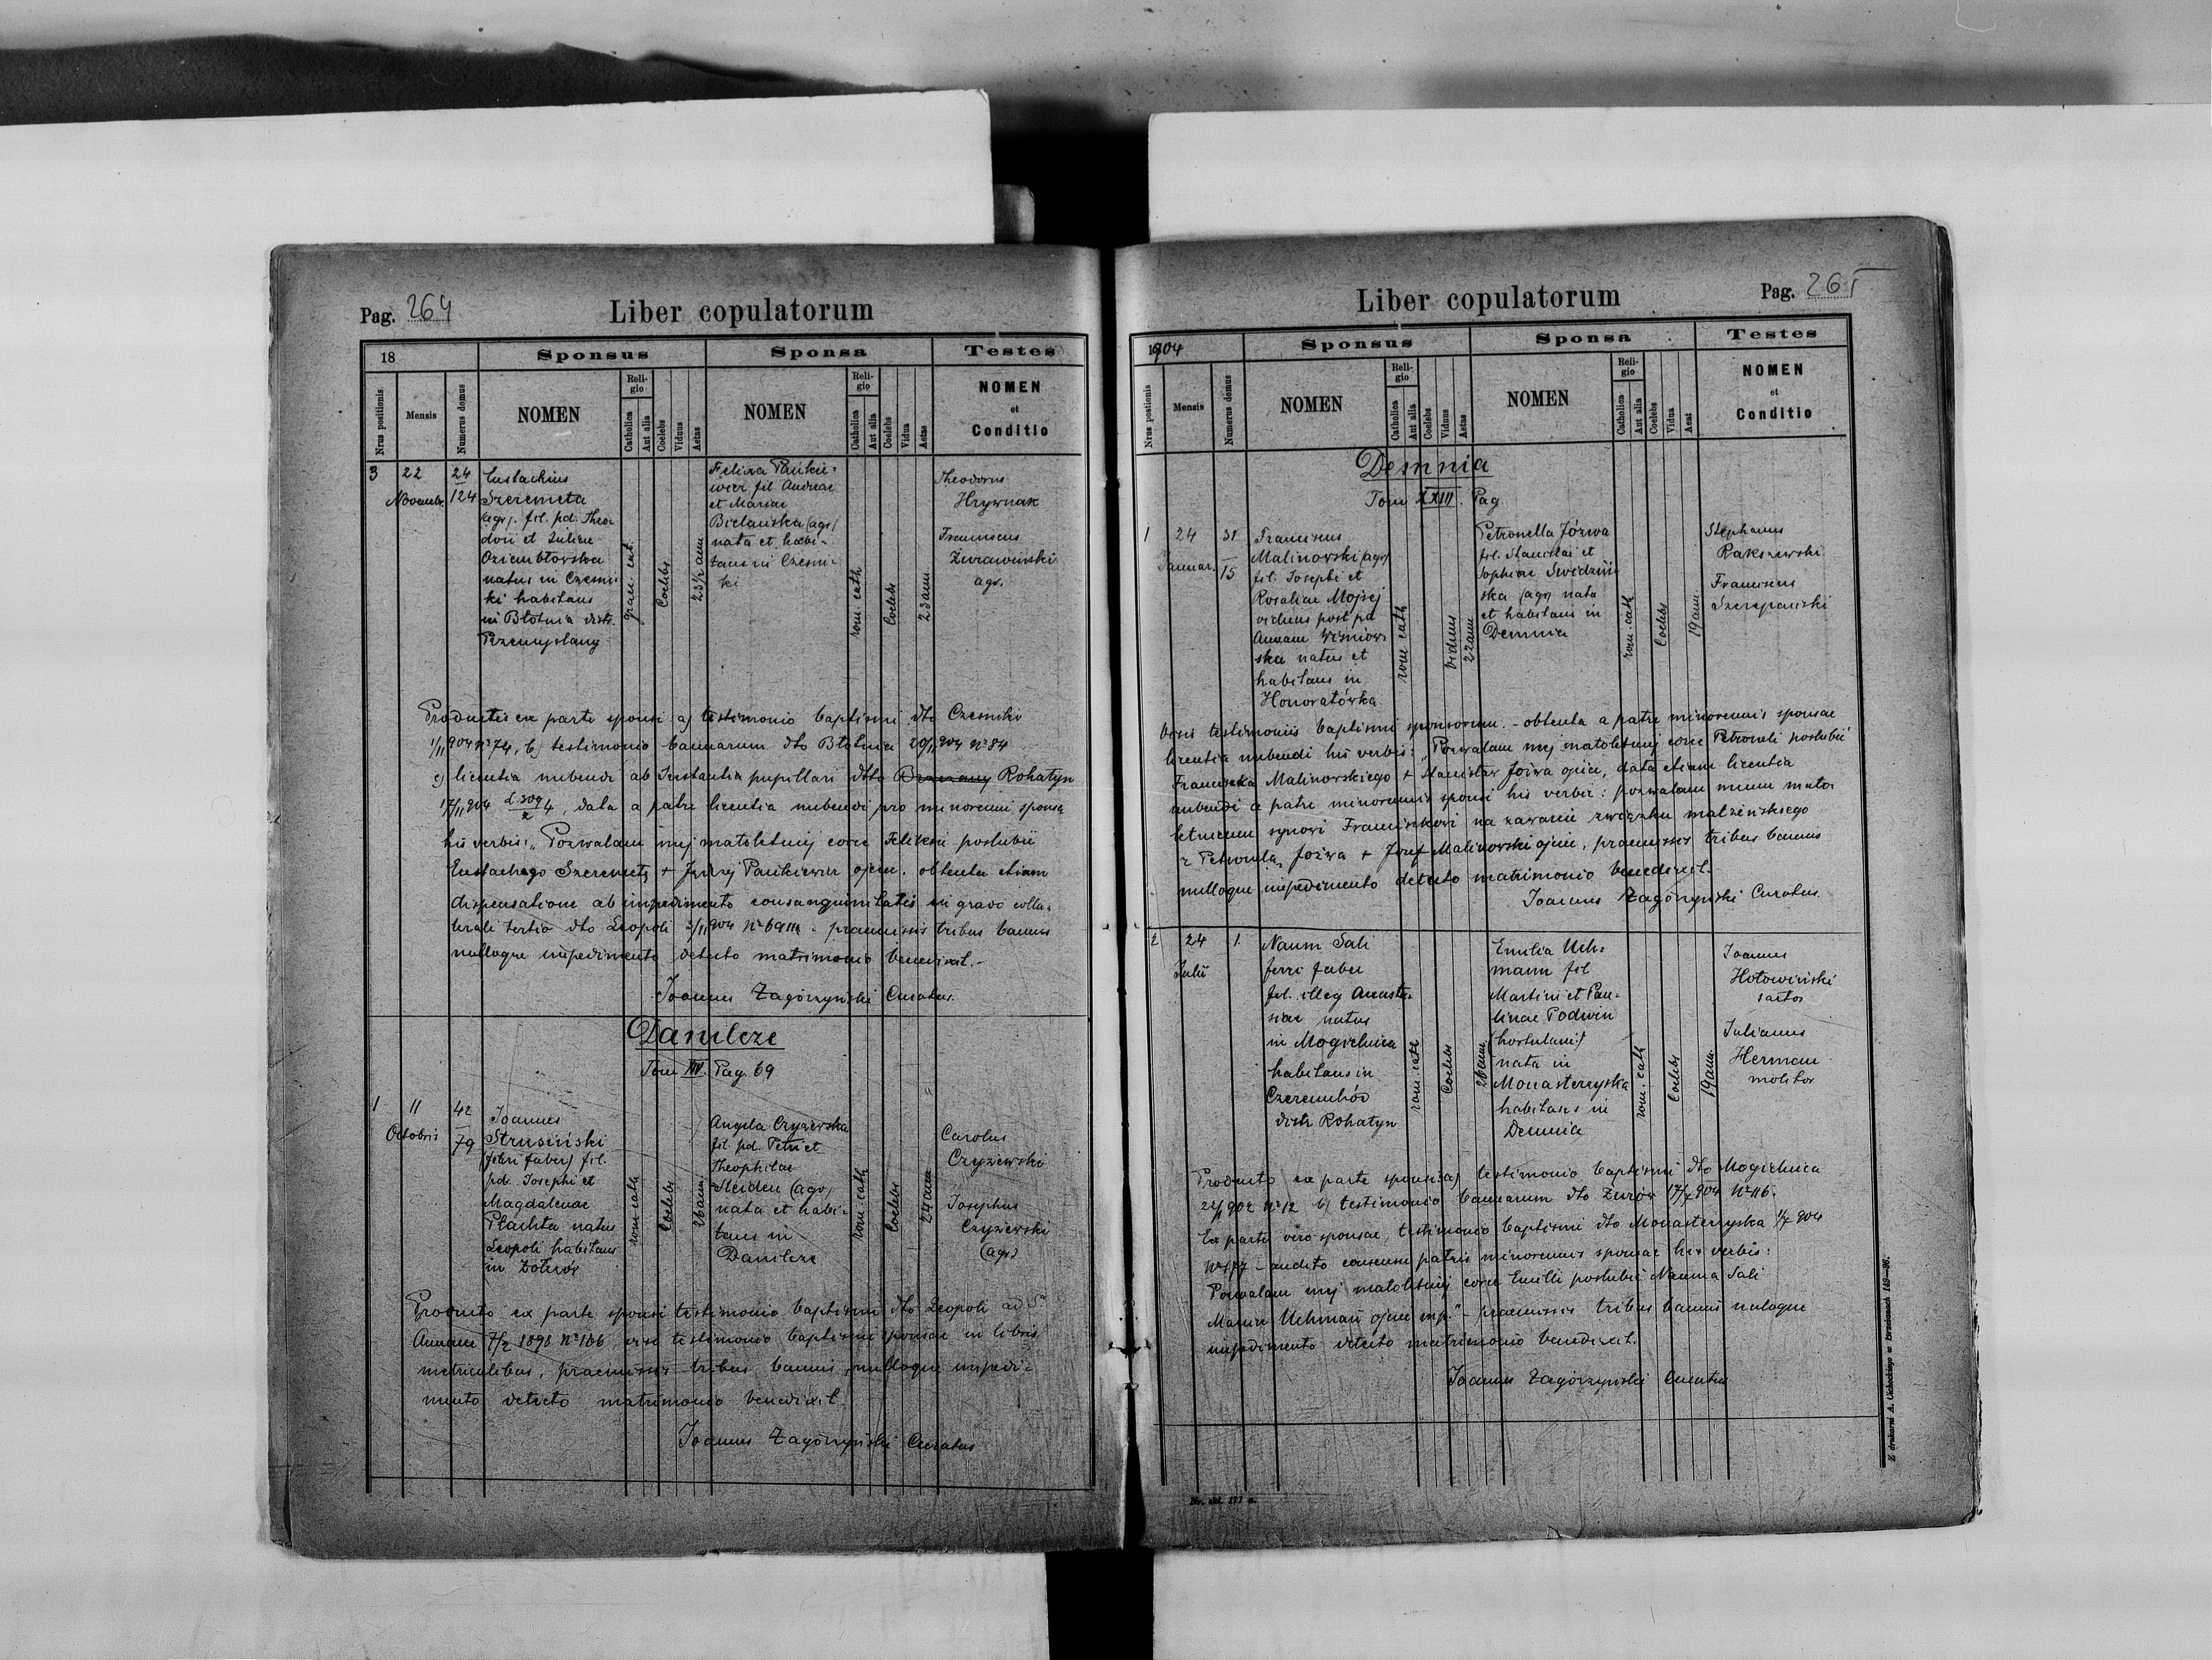 Pag. 264
Liber copulatorum
18
Sponsus
Sponsa
Testes
Nrus positionis
Mensis
Numerus domus
NOMEN
Religio
Catholica
Aut alia
Coelebs
Viduus
Aetas
NOMEN
Religio
Catholica
Aut alia
Coelebs
Vidua
Aetas
NOMEN
et
Conditio
3
22
Novembr.
24
124
Eustachius
Szeremeta
(agr). fil. pd. Theo-
dori et Juliae
natus in Czesni-
ki habitans
in Błotnia distr.
Przemyslany
graec. cat.
Coelebs
23 1/2 ann
Felixa Pańkie-
wicz fil. Andreae
et Mariae
Bielańska (agr)
nata et habi-
tans in Czesni-
ki
rom. cath
Coelebs
23 ann.
Theodorus
Hrywnak
Franciscus
Żurawiński
agr.
Productis ex parte sponsi a) testimonio baptismi dto Czesniki
1/11 904 No 74, b) testimonio bannorum dto Błotnia 20/11 904 No 84
c) licentia nubendi ab Instantia pupillari dtto Brzezany Rohatyn
17/11 904, data a patre licentia nubendi pro minorenni sponsa
his verbis: "Pozwalam mej małoletniej córce Feliksie poslubić
Eustachego Szeremetę + Jędrzej Pańkiewicz ojciec. obtenta etiam
dispensatione ab impedimento consanguinitatis in grado colla-
terali tertio dto Leopoli 3/11 904 No 6911 - praemissis tribus bannis
nulloque impedimento detecto matrimonio benedixit.-
Joannes Zagórzyński Curatus.
Danilcze
Tom XIII. Pag. 69
1
11
Octobris
42
79
Joannes
Strusiński
(ferri faber) fil.
pd. Josephi et
Magdalenae
Płachta natus
Leopoli habitans
in Żołczów
rom cath
Coelebs
26 ann
Angela Czyżewska
fil. pd. Petri et
Theophilae
Steiden (agr)
nata et habi-
tans in
Danilcze
rom. cath
Coelebs
24 ann
Carolus
Czyżewski
Josephus
Czyżewski
(agr)
Producto ex parte sponsi testimonio baptismi dto Leopoli ad S.
Annam 7/2 1898 No 186, viso testimonio baptismi sponsae in libris
metricalibus, praemissis tribus bannis, nulloque impedi-
mento detecto matrimonio benedixit.
Joannes Zagórzyński Curatus
Pag. 265
Liber copulatorum
1904
Sponsus
Sponsa
Testes
Nrus postionis
Mensis
Numerus domus
NOMEN
Religio
Catholica
Aut alia
Coelebs
Viduus
Aetas
NOMEN
Religio
Catholica
Aut alia
Coelebs
Vidua
Aeat
NOMEN
et
Conditio
Demnia
Tom XXIII. Pag
1
24
Januar.
31
15
Franciscus
Malinowski (agr)
fil. Josephi et
Rosaliae Mojsej
viduus post pd
Annam Wiśniow-
ska natus et
habitans in
Honoratówka
rom cath
Viduus
22 ann
Petronella Józwa
fil. Stanislai et
Sophiae Swidziń-
ska (agr) nata
et habitans in
Demnia
rom. cath
Coelebs
19 ann.
Stephanus
Rakszewski
Franciscus
Szczepański
Visis testimoniis baptismi sponsorum. - obtenta a patre minorennis sponsae
licentia nubendi his verbis: "Pozwalam mej małoletniej córce Petroneli poslubić
Franciszka Malinowskiego + Stanisław Józwa ojciec, data etiam licentia
nubendi a patre minorennis sponsi his verbis: pozwalam memu mało-
letniemu synowi Franciszkowi na zawarcie związku małżeńskiego
z Petronelą Józwa + Józef Malinowski ojciec, praemissis tribus bannis
nulloque impedimento detecto matrimonio benedixit.
Joannes Zagórzyński Curatus.
2
24
Julii
1.
Naum Sali
ferri faber
fil. illeg Anasta-
siae natus
in Mogielnica
habitans in
distr Rohatyn
rom. cath
Coelebs
26 ann.
Emilia Uch-
mann fil
Martini et Pau-
linae Podwin
nata in
Monasterzyska
habitans in
Demnia
rom. cath
Coelebs
19 ann.
Joannes
Hołowiński
sartor
Julianus
Herman
molitor
Producto ex parte sponsi a) testimonio baptismi dto Mogielnica
22/1 902 No 12 b) testimonio bannorum dto Żurów 17/7 904 No 116.
Ex parte vero sponsae, testimonio baptismi dto Monasterzyska 1/7 904
No 177 - audito consensu patris minorennis sponsae his verbis:
Pozwalam mej małoletniej córce Emilii poslubić Nauma Sali
Marcin Uchman ojciec mp." - praemissis tribus bannis nuloque
impedimento detecto matrimonio benedixit.
Joannes Zagórzyński Curatus
Nr. skł. 177 a.
Z drukarni A. Cichockiego w Brzeżanach 149—96.